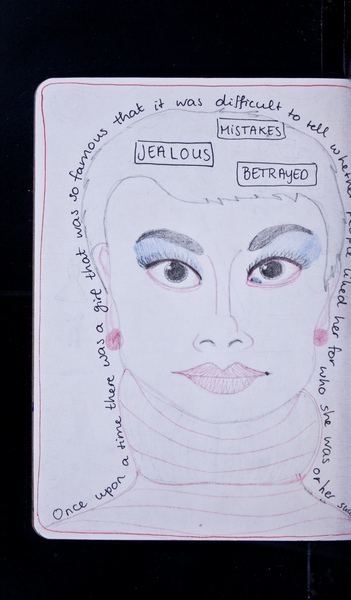 Once upon a time there was a girl that was so famous that it was difficult to tell whether people liked her for who she was or her
MISTAKES
JEALOUS
BETRAYED